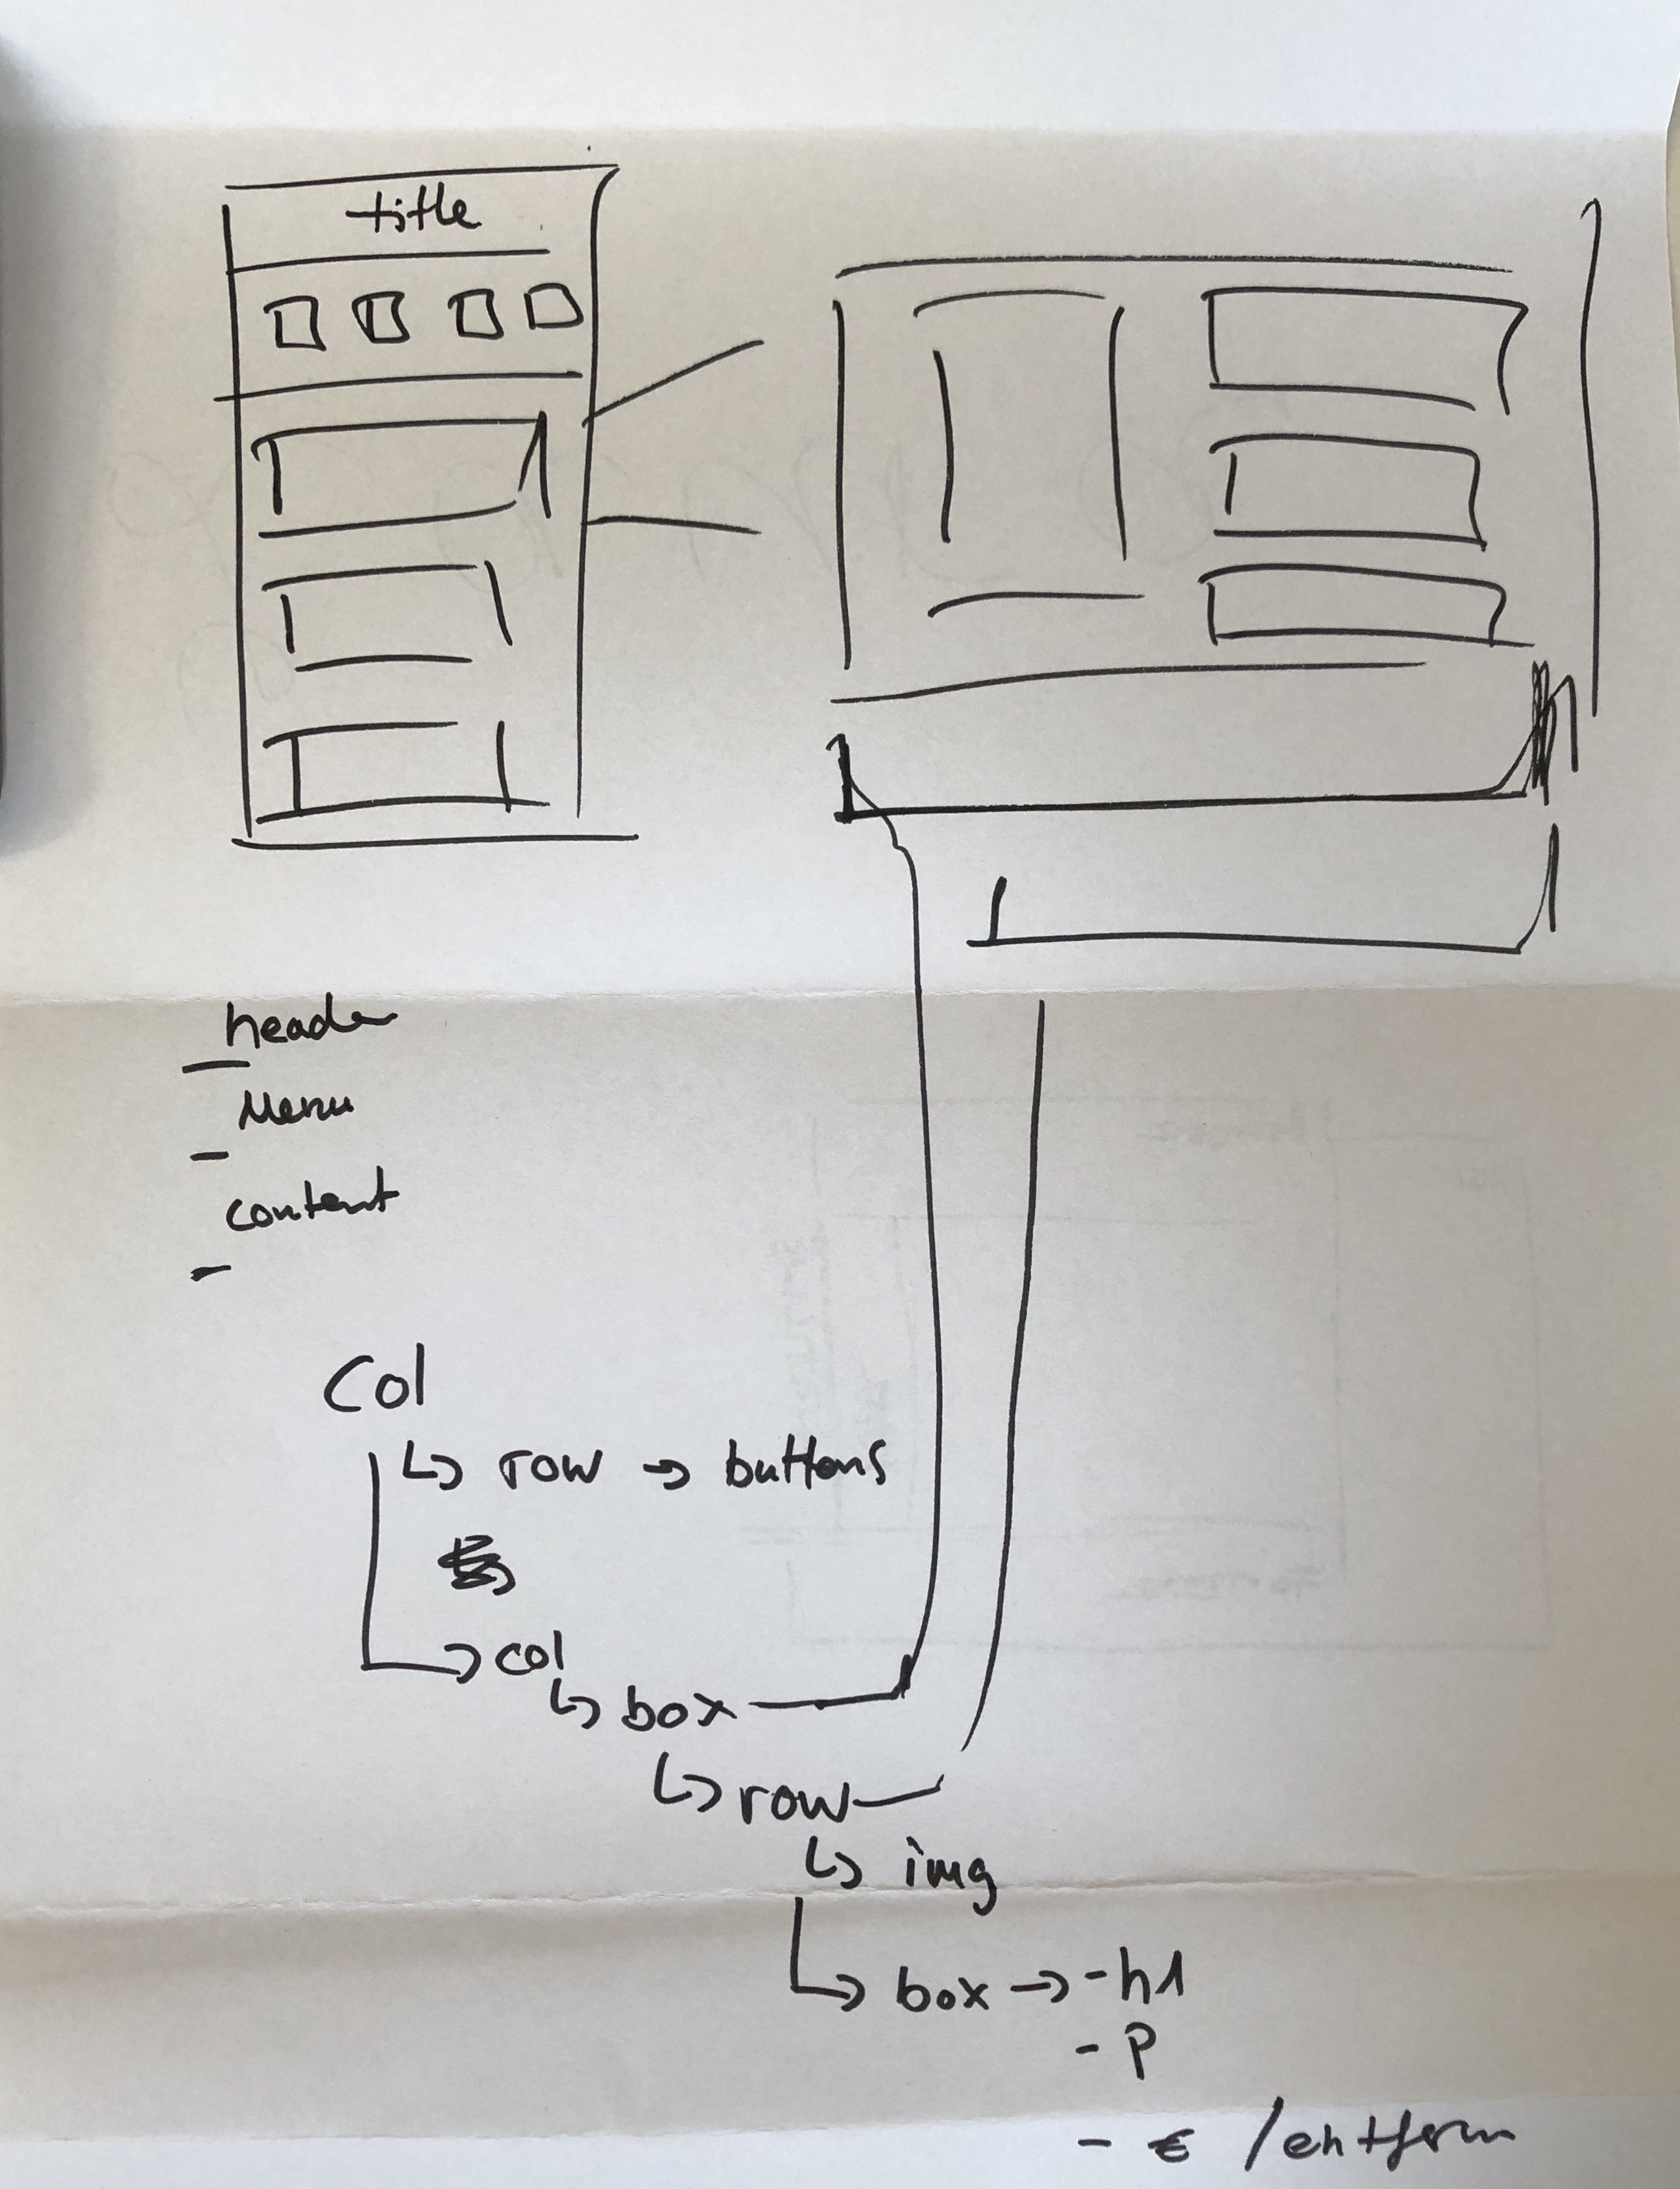 title
header
Menu
content
Col
↳ row → buttons
→ col
↳ box
↳ row
↳ img
↳ box → - h1
- P
- € /